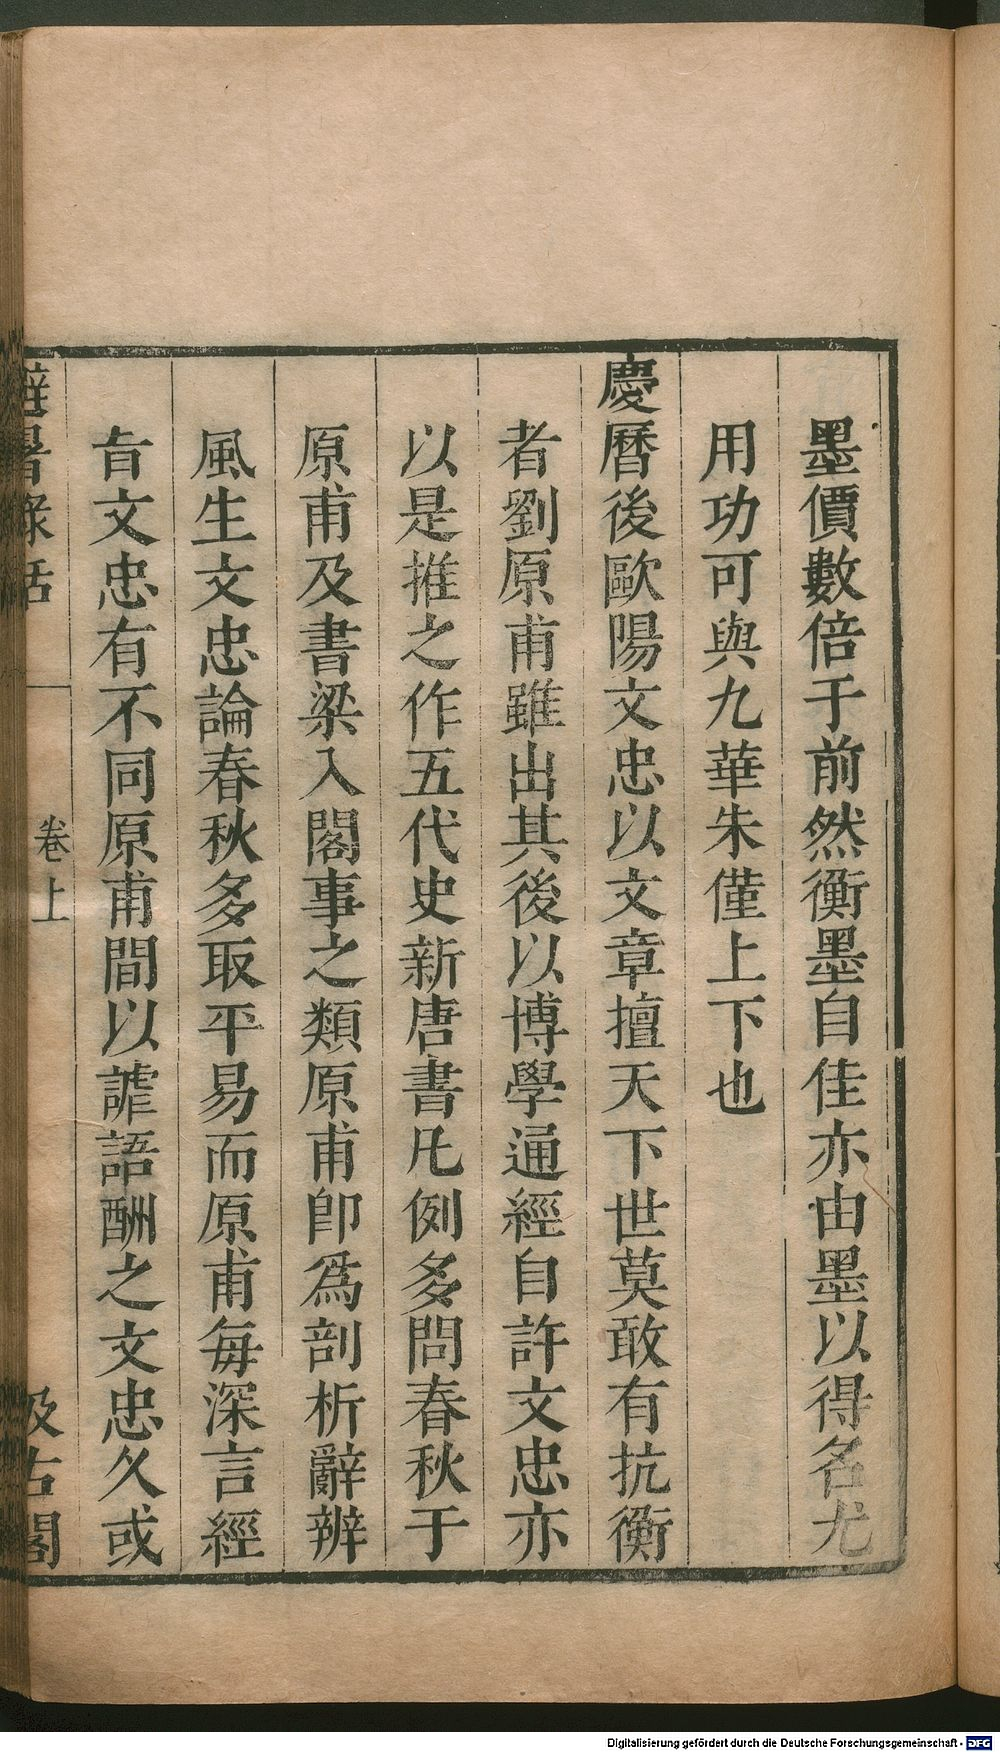 墨價數倍于前然衡墨自佳亦由墨以得名尤
用功可與九華朱僅上下也
慶曆後歐陽文忠以文章擅天下世莫敢有抗衡
者劉原甫雖出其後以博學通經自許文忠亦
以是推之作五代史新唐書凡例多問春秋于
原甫及書梁入閣事之類原甫卽爲剖析辭辨
風生文忠論春秋多取平易而原甫每深言經
旨文忠有不同原甫間以謔語酬之文忠久或
避暑錄話
卷上
汲古閣
Digitalisierung gefördert durch die Deutsche Forschungsgemeinschaft - DFG